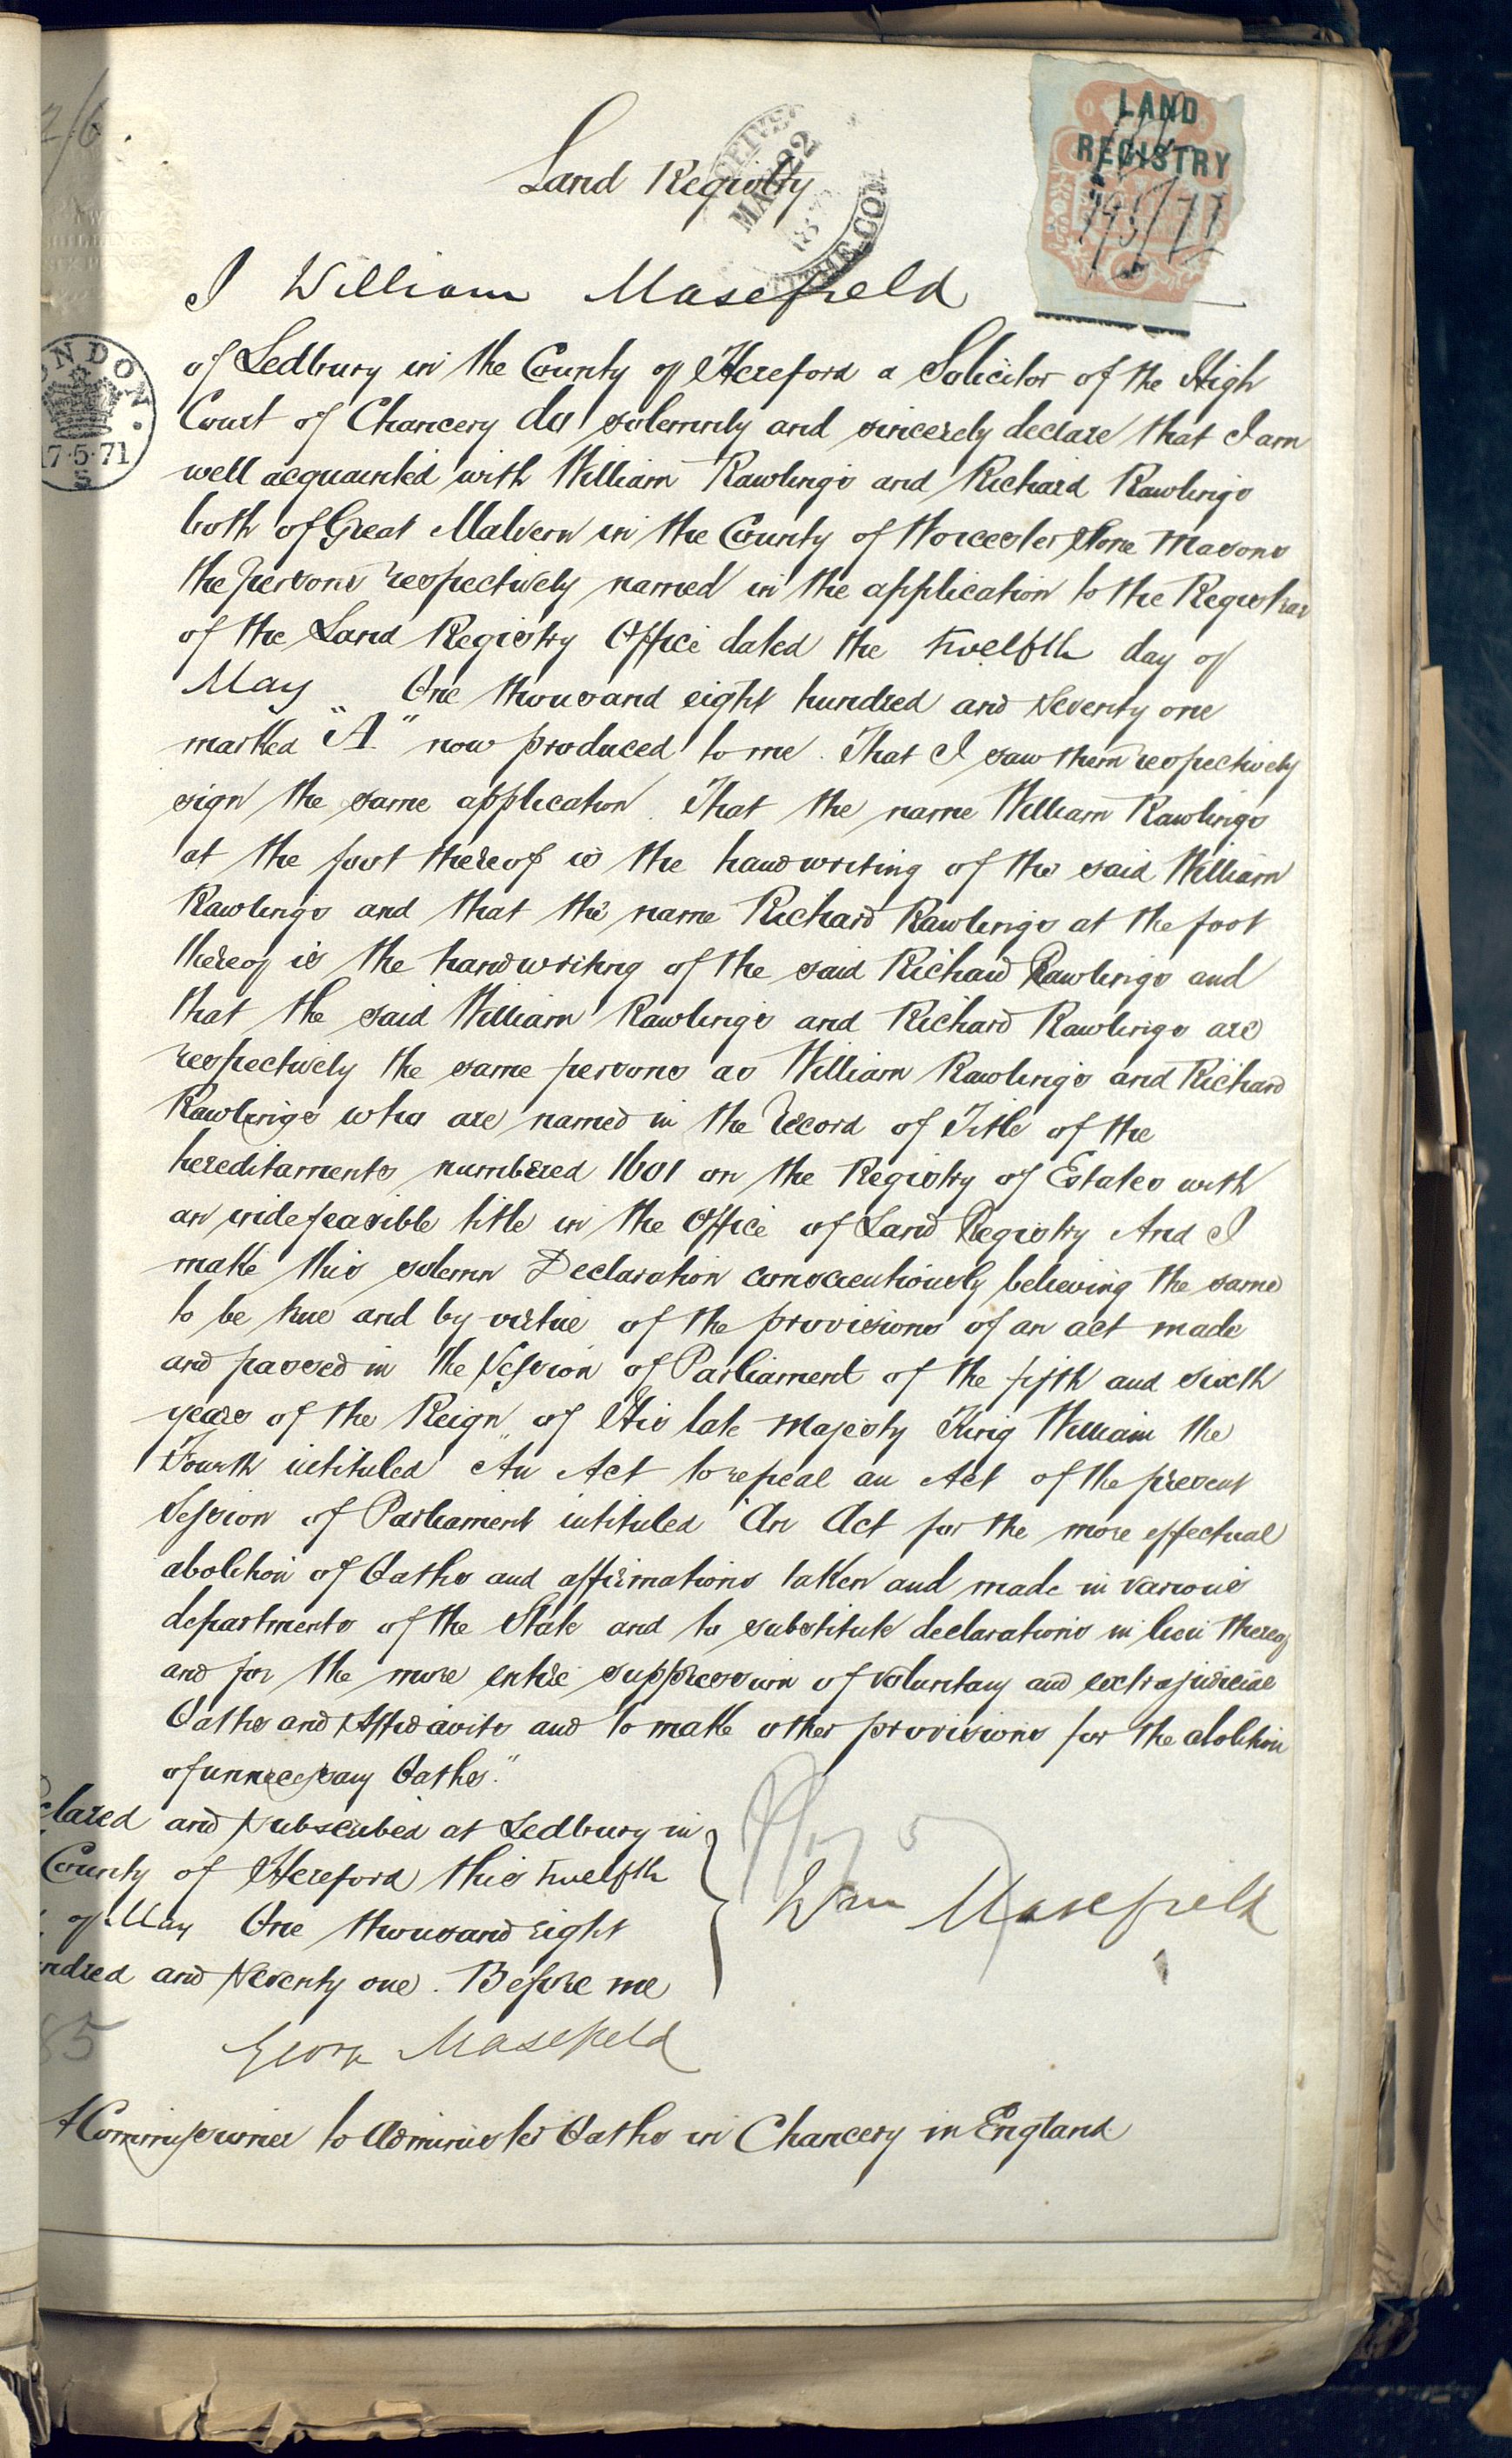 2/6
Land Registry
MAY 22
LAND
REGISTRY
19/5/71
I William Masefield
ONDON
17·5·71
S
of Ledbury in the County of Hereford a Solicitor of the High
Court of Chancery do solemnly and sincerely declare that I am
well acquainted with William Rawlings and Richard Rawlings
both of Great Malvern in the County of Worcester Stone Masons
the persons respectively named in the application to the Registrar
of the Land Registry Office dated the twelfth day of
May One thousand eight hundred and Seventy one
marked "A" now produced to me. That I saw them respectively
sign the same application. That the name William Rawlings
at the foot thereof is the handwriting of the said William
Rawlings and that the name Richard Rawlings at the foot
thereof is the handwriting of the said Richard Rawlings and
that the said William Rawlings and Richard Rawlings are
respectively the same persons as William Rawlings and Richard
Rawlings who are named in the record of Title of the
hereditaments numbered 1601 on the Registry of Estates with
an indefeasible title in the Office of Land Registry And I
make this solemn Declaration conscientiously believing the same
to be true and by virtue of the provisions of an act made
and passed in the Session of Parliament of the fifth and sixth
years of the Reign of His late Majesty King William the
Fourth intituled "An Act to repeal an Act of the present
Session of Parliament intituled "An Act for the more effectual
abolition of Oaths and affirmations taken and made in various
departments of the State and to substitute declarations in lieu thereof
and for the more entire suppression of voluntary and extrajudicial
Oaths and Affidavits and to make other provisions for the abolition
of unnecessary Oaths."
clared and Subscribed at Ledbury in
County of Hereford this twelfth
of May One thousand eight
ndred and Seventy one. Before me
Wm Masefield
85
George Masefield
A Commissioner to Administer Oaths in Chancery in England